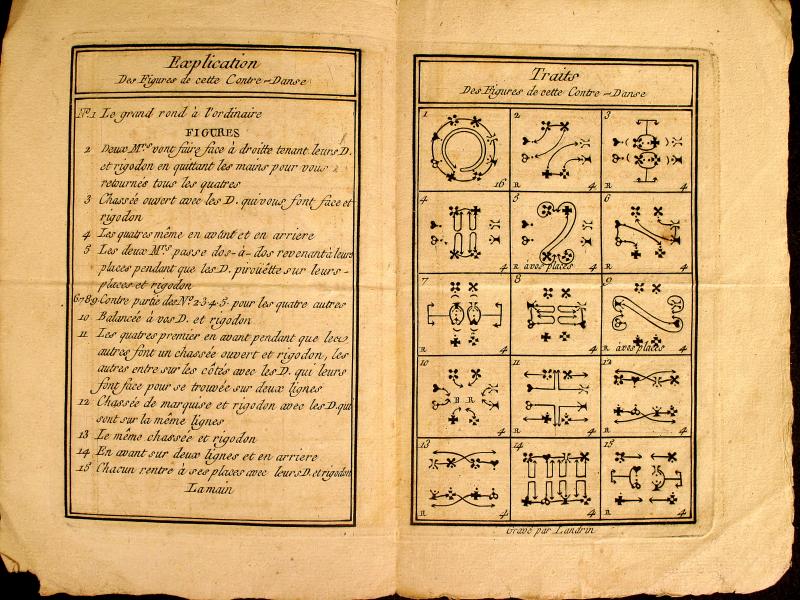 Explication
Des Figures de cette Contre-Danse
No. 1 Le grand rond à l'ordinaire
FIGURES
2 Deux Mrs vont faire face à droitte tenant leurs D.
et rigodon en quittant les mains pour vous
retournés tous les quatres
3 Chassée ouvert avec les D. qui vous font face et
rigodon
4 Les quatres même en avant et en arriere
5 Les deux Mrs passe dos-à-dos revenant à leurs
places pendant que les D. pirouëtte sur leurs-
places et rigodon
6789 Contre partie des No. 2.3.4.5. pour les quatre autres
10 Balancée à vos D. et rigodon
11 Les quatres premier en avant pendant que les
autres font un chassée ouvert et rigodon, les
autres entre sur les côtés avec les D. qui leurs
font face pour se trouvée sur deux lignes
12 Chassée de marquise et rigodon avec les D. qui
sont sur la même lignes
13 Le même chassée et rigodon
14 En avant sur deux lignes et en arriere
15 Chacun rentre à ses places avec leurs D. et rigodon
La main
Traits
Des Figures de cette Contre-Danse
1 2 3
16 R 4 R 4
4 5 6
R 4 R à vos places 4 R 4
7 8 9
R 4 R 4 R à vos places 4
10 11 12
B R
R 4 R 4 R 4
13 14 15
R 4 4 R 4
Gravé par Landrin